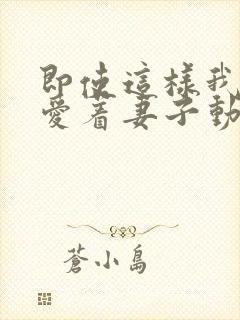 即使這樣我
愛着妻子動
蒼小島